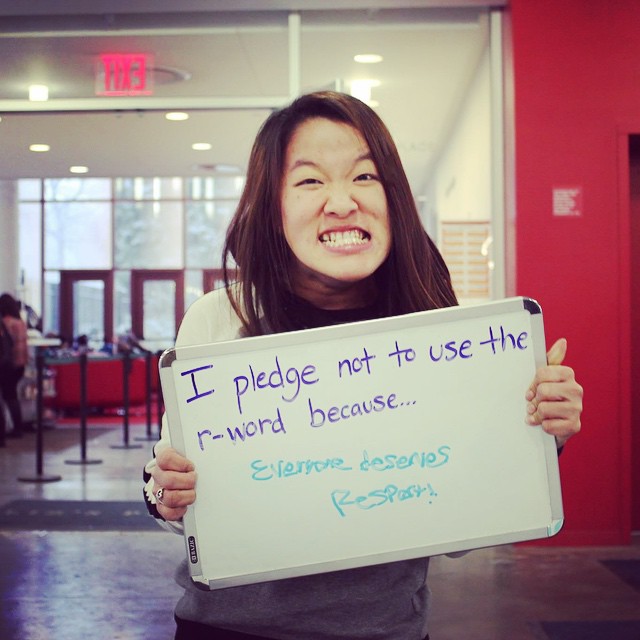 EXIT
I pledge not to use the
r-word because...
Everyone deserves
Respect!